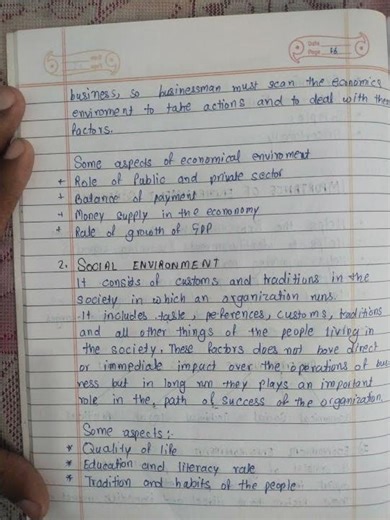 Date
Page 16
business, so businessman must scan the economics
enviroment to take actions and to deal with them
factors.
Some aspects of economical enviroment
+ Role of Public and private sector
+ Balance of payment
+ Money supply in the econonomy
+ Rate of growth of GDP
2. SOCIAL ENVIRONMENT
It consits of customs and traditions in the
society in which an organization runs.
It includes taste, peferences, customs, traditions
and all other things of the people living in
the society. These factors does not have direct
or immediate impact over the operations of busi
ness but in long run they plays an important
role in the path of success of the organization.
Some aspects:-
* Quality of life
* Education and literacy rate
* Tradition and habits of the people